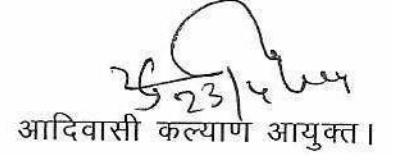 23/4/
आदिवासी कल्याण आयुक्त।